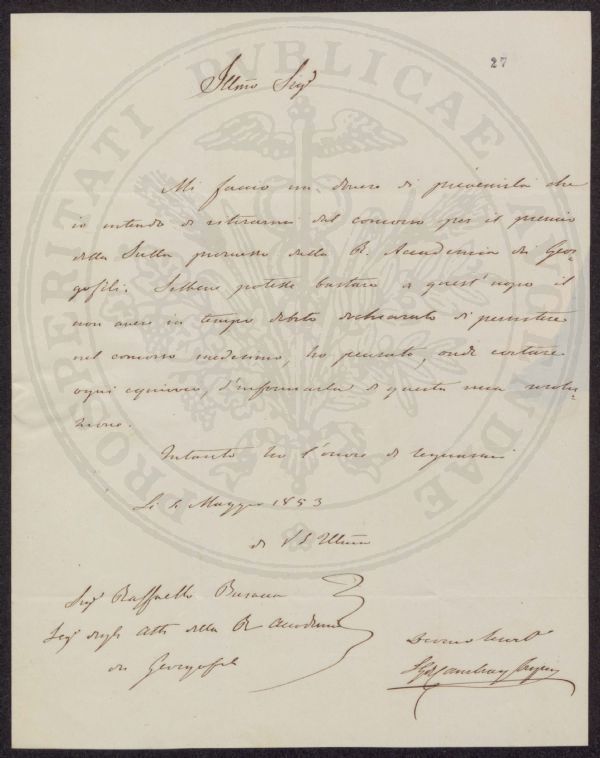 27
Illmo Sigr
Mi faccio un dovere di prevenirla che
io intendo di ritirarmi dal concorso per il premio
della Sulla promesso dalla R. Accademia dei Geor-
gofili. Sebbene potesse bastare a quest'uopo il
non avere in tempo debito dichiarato di persistere
nel concorso medesimo, ho pensato, onde evitare
ogni equivoco, d'informarla di questa mia risolu-
zione.
Intanto ho l'onore di segnarmi
Li 2 Maggio 1853
di V S Illma
Sigr Raffaello Busacca
Segr degli Atti della R Accademia
dei Georgofili
Devmo Servo
PROSPERITATI PUBLICAE AUGENDAE